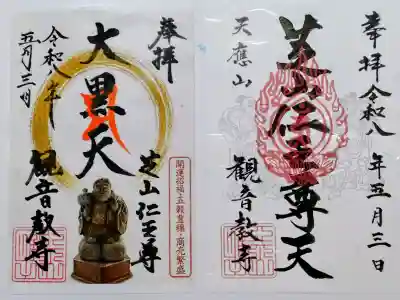 奉拝
大黒天
芝山仁王尊
開運招福・五穀豊穣・商売繁盛
令和八年
五月三日
観音教寺
奉拝令和八年五月三日
天應山
芝山仁王尊天
観音教寺